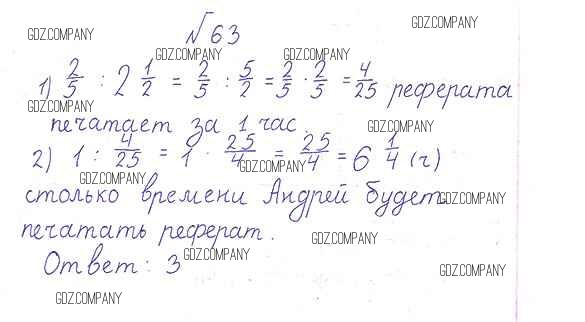 GDZ.COMPANY
№63
GDZ.COMPANY
GDZ.COMPANY
GDZ.COMPANY
1) 2/5 : 2 1/2 = 2/5 : 5/2 = 2/5 · 2/5 = 4/25 реферата
GDZ.COMPANY
печатает за 1 час.
GDZ.COMPANY
2) 1 : 4/25 = 1 · 25/4 = 25/4 = 6 1/4 (ч)
GDZ.COMPANY
GDZ.COMPANY
столько времени Андрей будет
GDZ.COMPANY
печатать реферат.
GDZ.COMPANY
GDZ.COMPANY
Ответ: 3
GDZ.COMPANY
GDZ.COMPANY